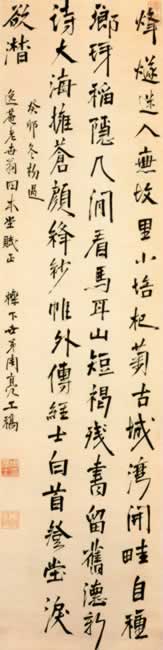 烽燧入無故里小培杞菊古城灣開畦自種
瑯琊稻隱几間看馬耳山短褐殘書留舊德新
詩大海擁蒼顏絳紗帷外傳經士白首登堂淚
欲潸
癸卯冬杪過
逸菴老世翁回來堂賦正
櫟下世弟周亮工稿